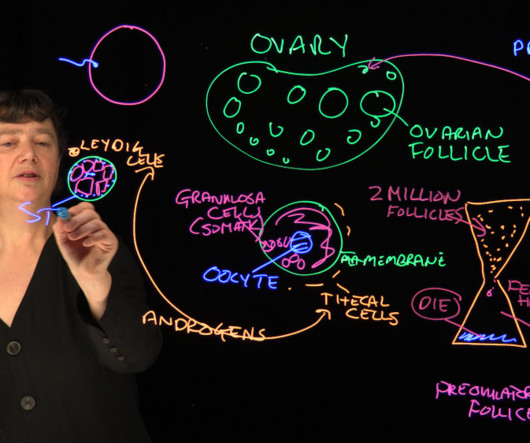 OVARY
OVARIAN
FOLLICLE
LEYDIG
CELLS
ST
GRANULOSA
CELLS
(SOMATIC
OOCYTE
MEMBRANE
THECAL
CELLS
ANDROGENS
2 MILLION
FOLLICLES
DIE